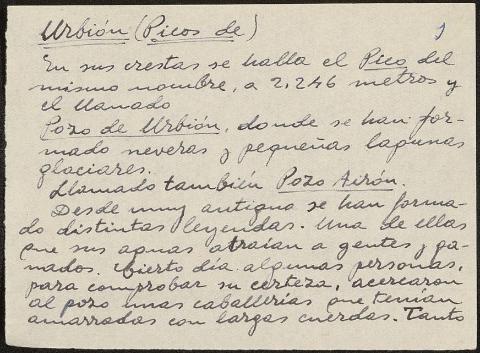 Urbión (Picos de) 1
En sus crestas se halla el Pico del
mismo nombre, a 2,246 metros y
el llamado
Pozo de Urbión, donde se han for-
mado neveras y pequeñas lagunas
glaciares.
Llamado también Pozo Airón.
Desde muy antiguo se han forma-
do distintas leyendas. Una de ellas
que sus aguas atraían a gentes y ga-
nados. Cierto día algunas personas,
para comprobar su certeza, acercaron
al pozo unas caballerías que tenían
amarradas con largas cuerdas. Tanto